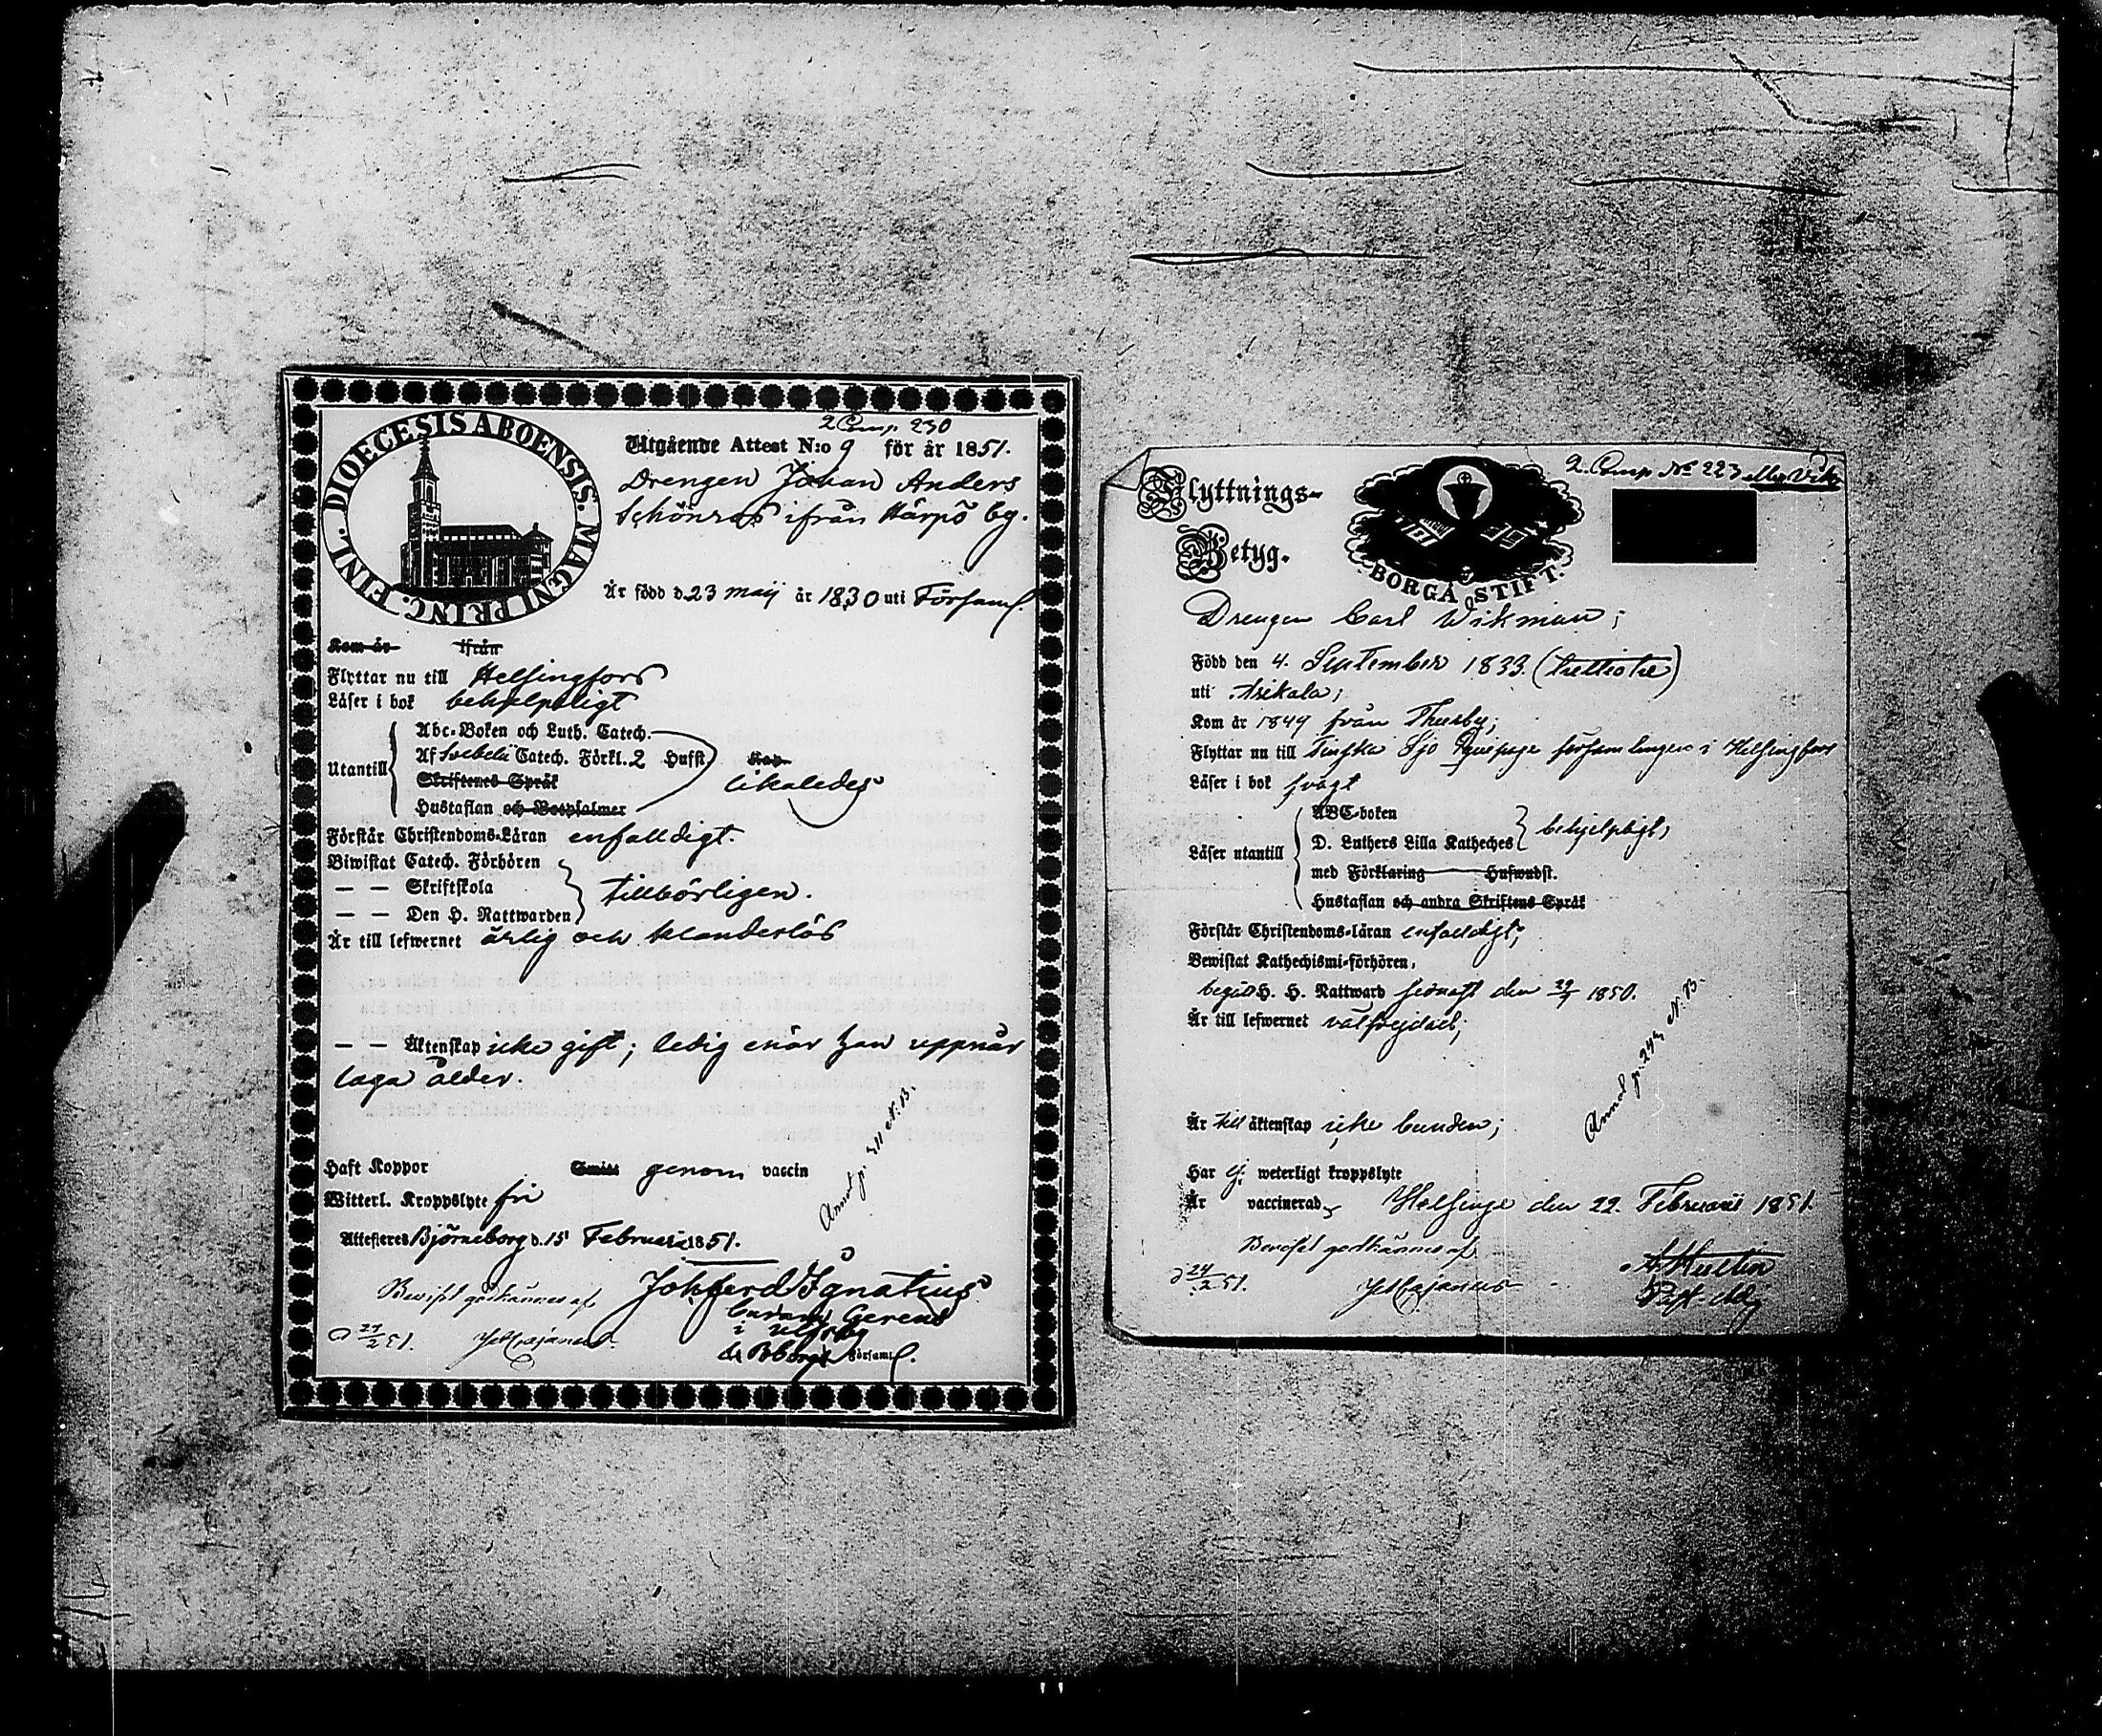 DIOECESIS ABOENSIS. MAGNI PRINC. FINL.
2 Comp. 230
Utgående Attest N:o 9 för år 1851.
Drengen Johan Anders
ifrån Härpö by.
Är född d. 23 maij år 1830 uti Församl.
Kom år ifrån
Flyttar nu till Helsingfors
Läser i bok behjelpeligt
Utantill
Abc-Boken och Luth. Catech.
Af Svebelii Catech. Förkl. 2 Hufst
Kap.
Skriftenes Språk
likaledes
Hustaflan och Botpsalmer
Förstår Christendoms-Läran enfalldigt.
Biwistat Catech. Förhören
— — Skriftskola
tillbörligen.
— — Den H. Nattwarden
Är till lefwernet ärlig och klanderlös
— — Äktenskap icke gift; ledig enär han uppnår
laga ålder.
Haft Koppor Smitt genom vaccin
Witterl. Kroppslyte fri
Annot. p. 311 N. 13.
Attesteres Björneborg d. 15 Februari 1851.
Beviset godkännes af
Joh. Ferd. Ignatius
Curam Gerens
i Ulfsby
Församl.
d 27/2 51.
Flyttnings-
Betyg.
BORGÅ STIFT.
2. Comp No 223
Drengen Carl Wikman;
Född den 4. September 1833. (trettiotre)
uti Asikala;
Kom år 1849 från Thusby;
Flyttar nu till Finska Sjö Equipage församlingen i Helsingfors
Läser i bok svagt
Läser utantill
ABC-boken
D. Luthers Lilla Katheches
behjelpligt,
med Förklaring Hufwudst.
Hustaflan och andra Skriftens Språk
Förstår Christendoms-läran enfaldigt;
Bewistat Kathechismi-förhören,
begått H. H. Nattward senast den 29/9 1850.
Är till lefwernet välfrejdad;
Annot. p. 243 N. 13.
Är till äktenskap icke bunden;
Har ej weterligt kroppslyte
Är vaccinerad, Helsinge den 22. Februarii 1851.
Beviset godkännes af
d 24/2 51.